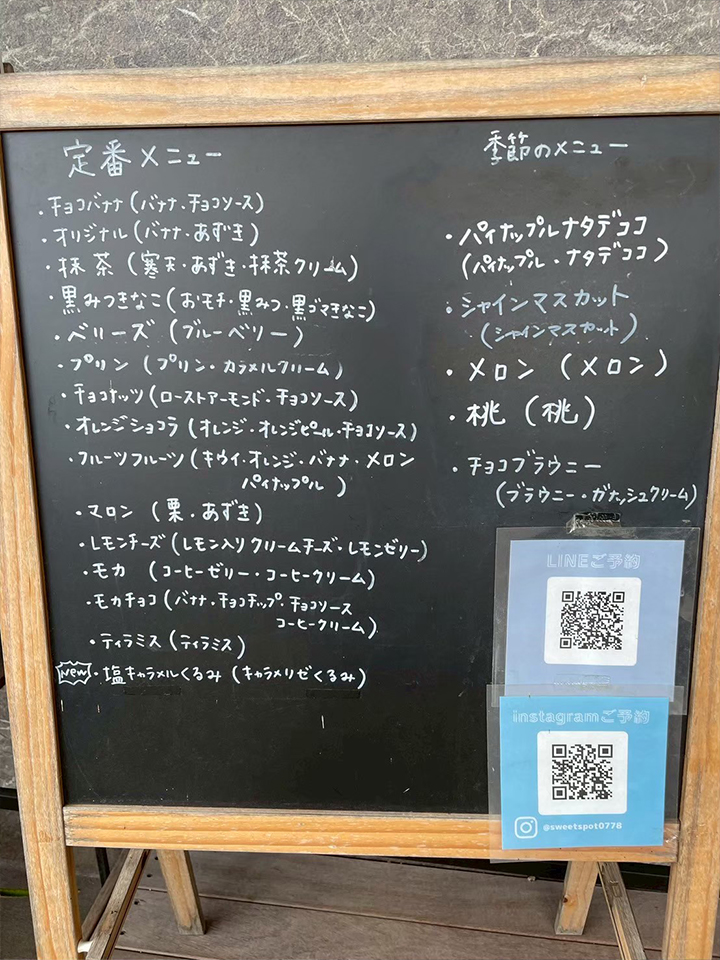 定番メニュー
・チョコバナナ(バナナ・チョコソース)
・オリジナル(バナナ・あずき)
・抹茶(寒天・あずき・抹茶クリーム)
・黒みつきなこ(おモチ・黒みつ・黒ゴマきなこ)
・ベリーズ(ブルーベリー)
・プリン(プリン・カラメルクリーム)
・チョコナッツ(ローストアーモンド・チョコソース)
・オレンジショコラ(オレンジ・オレンジピール・チョコソース)
・フルーツフルーツ(キウイ・オレンジ・バナナ・メロン
パイナップル)
・マロン(栗・あずき)
・レモンチーズ(レモン入りクリームチーズ・レモンゼリー)
・モカ(コーヒーゼリー・コーヒークリーム)
・モカチョコ(バナナ・チョコチップ・チョコソース
コーヒークリーム)
・ティラミス(ティラミス)
New・塩キャラメルくるみ(キャラメリゼくるみ)
季節のメニュー
・パイナップルナタデココ
(パイナップル・ナタデココ)
・シャインマスカット
(シャインマスカット)
・メロン(メロン)
・桃(桃)
・チョコブラウニー
(ブラウニー・ガナッシュクリーム)
LINEご予約
instagramご予約
@sweetspot0778